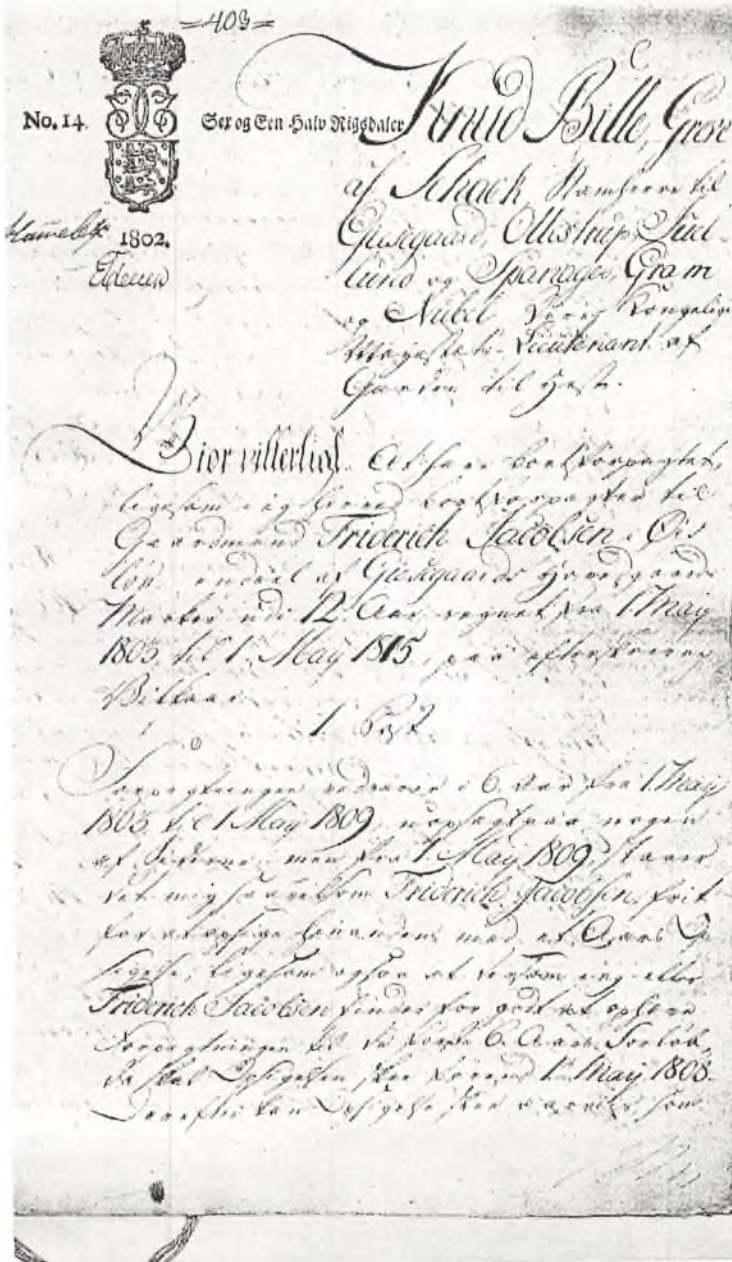 =403=
No. 14. Sex og Een Halv Rigsdaler Knud Bille, Greve
af Schack Stamherre til
Giesegaard, Ollestrup, Juel-
lund og Spanager, Gram
og Nübel Kongelige
1802. Majestets Lieutenant af
Garden til Hest.
Giør vitterligt At have bortforpagtet,
ligesom jeg herved bortforpagter til
Gaardmand Friderich Jacobsen i
endeel af Giesegaards Hovedgaards
Marker udi 12 Aar regnet fra 1 May
1803 til 1 May 1815, paa efterskrevne
Vilkaar
1. Post.
Forpagtningen vedvarer i 6 Aar fra 1 May
1803 til 1 May 1809, nogen
af Siderne, men fra 1. May 1809, staaer
det mig saavelsom Friderich Jacobsen frit
for at opsige hinanden med et Aars Op-
sigelse, ligesom ogsaa at dersom jeg eller
Friderich Jacobsen finder for godt at ophæve
Forpagtningen til de første 6 Aars Forløb,
da skal Opsigelsen skee forend 1 May 1808.
Derefter kan Opsigelse skee som